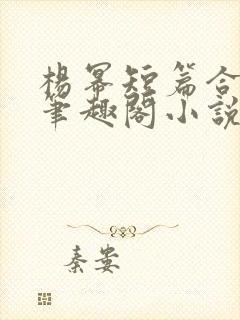 楊冪短篇合
筆趣閣小說
秦嶴